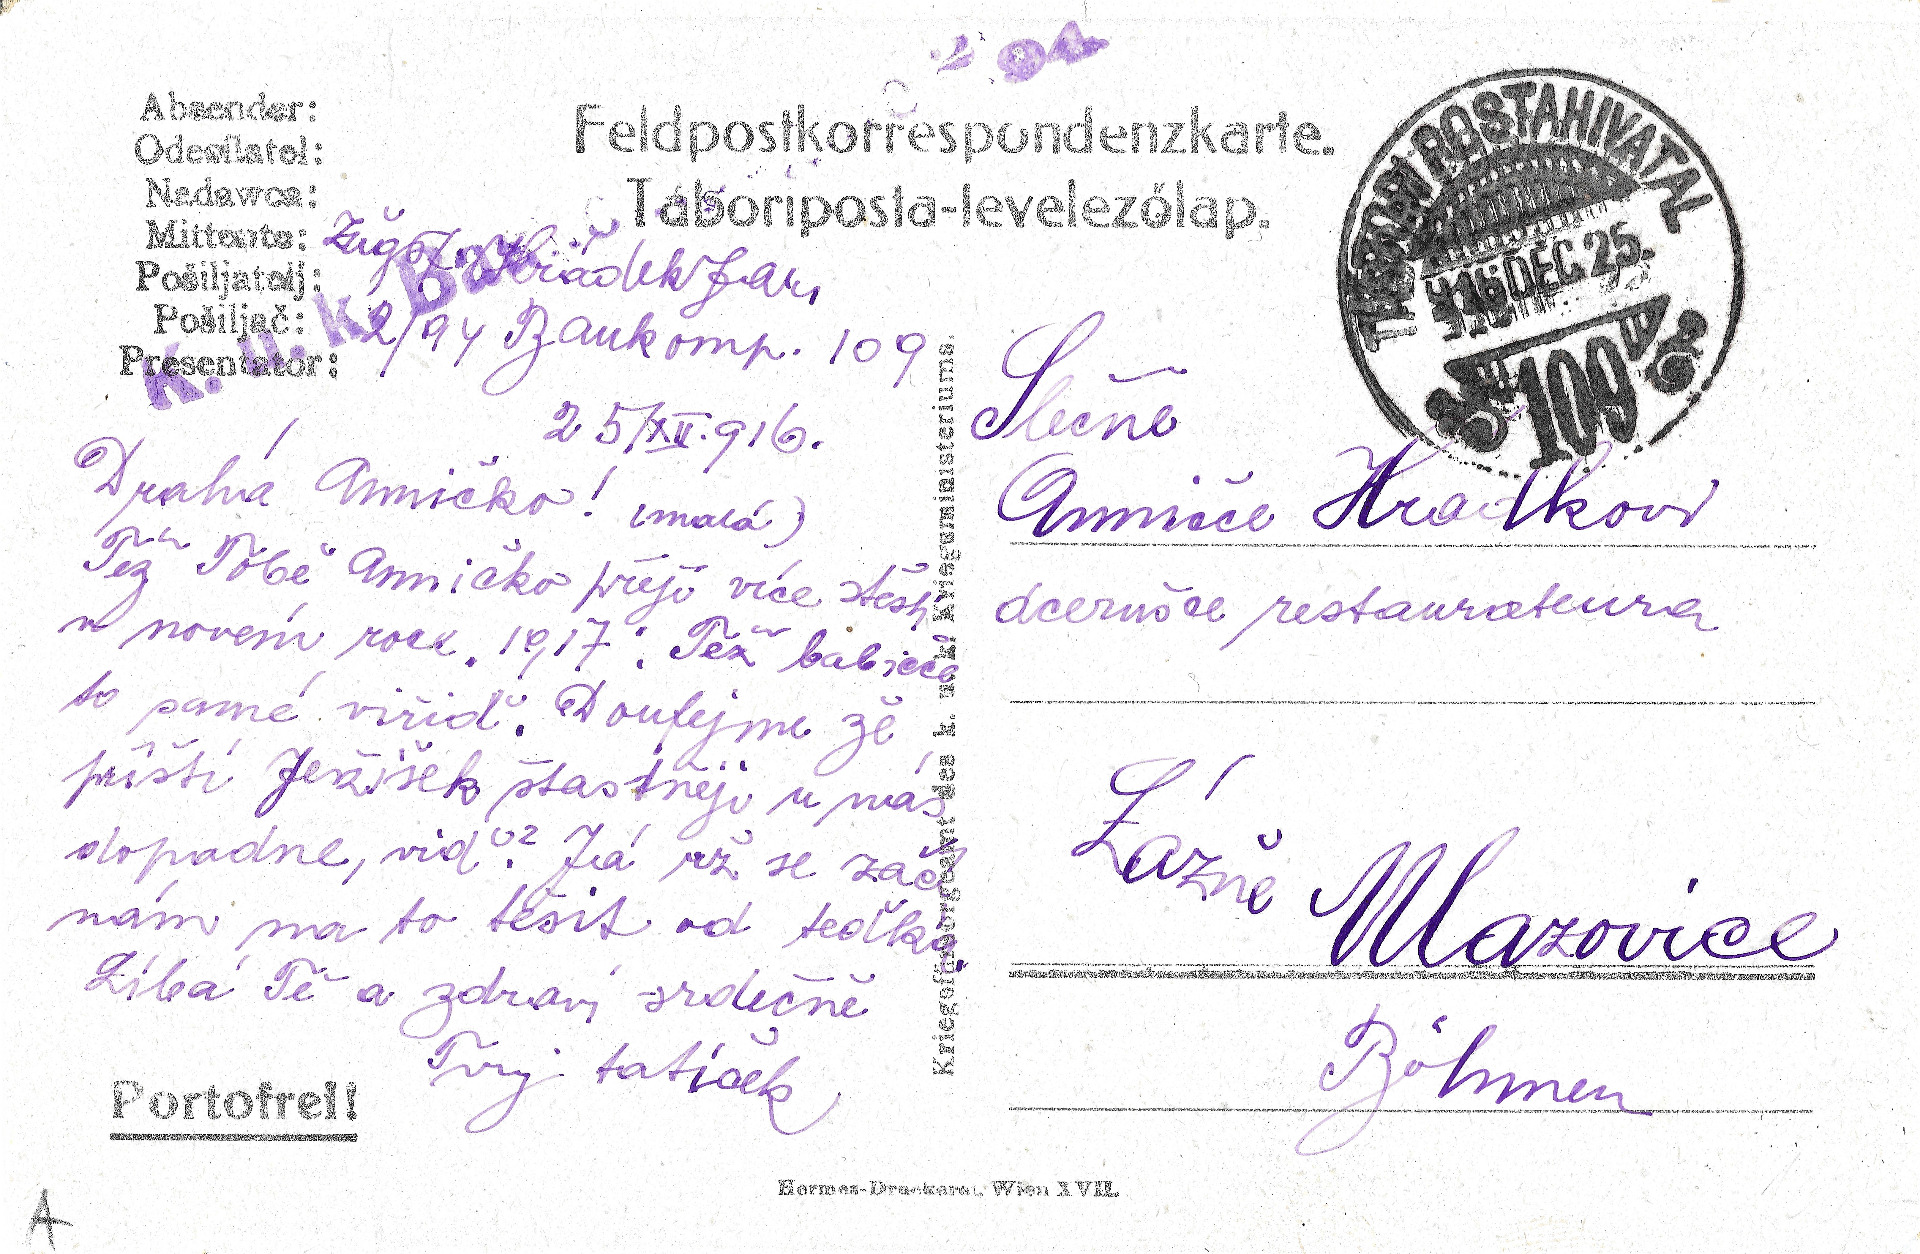 Absender:
Odesílatel:
Nadawca:
Mittente:
Pošiljatelj:
Pošiljač:
Presentator:
Feldpostkorrespondenzkarte.
Tábori posta-levelezőlap.
Zugsf. Hrádek Jar.
2/94 Baukomp. 109
K. u. k. Bau
94
TÁBORI POSTAHIVATAL
916 DEC 25.
109
25/XII. 916.
Drahá Anničko! (malá)
Též Tobě Anničko přeji více štěstí
v novém roce 1917. Též babičce
to samé viřiď. Doufejme že
příští Ježíšek štastněji u nás
dopadne, viď? Já už se zač
nám na to těsit od teďka.
Líbá Tě a zdraví srdečně
Tvuj tatíček
Slečně
Anničce Hradkovi
dcerušce restaurateura
Lázně Mazovice
Böhmen
Kriegsfürsorgeamt des k. u. k. Kriegsministeriums.
Portofrei!
Hermes-Druckerei, Wien XVII.
A